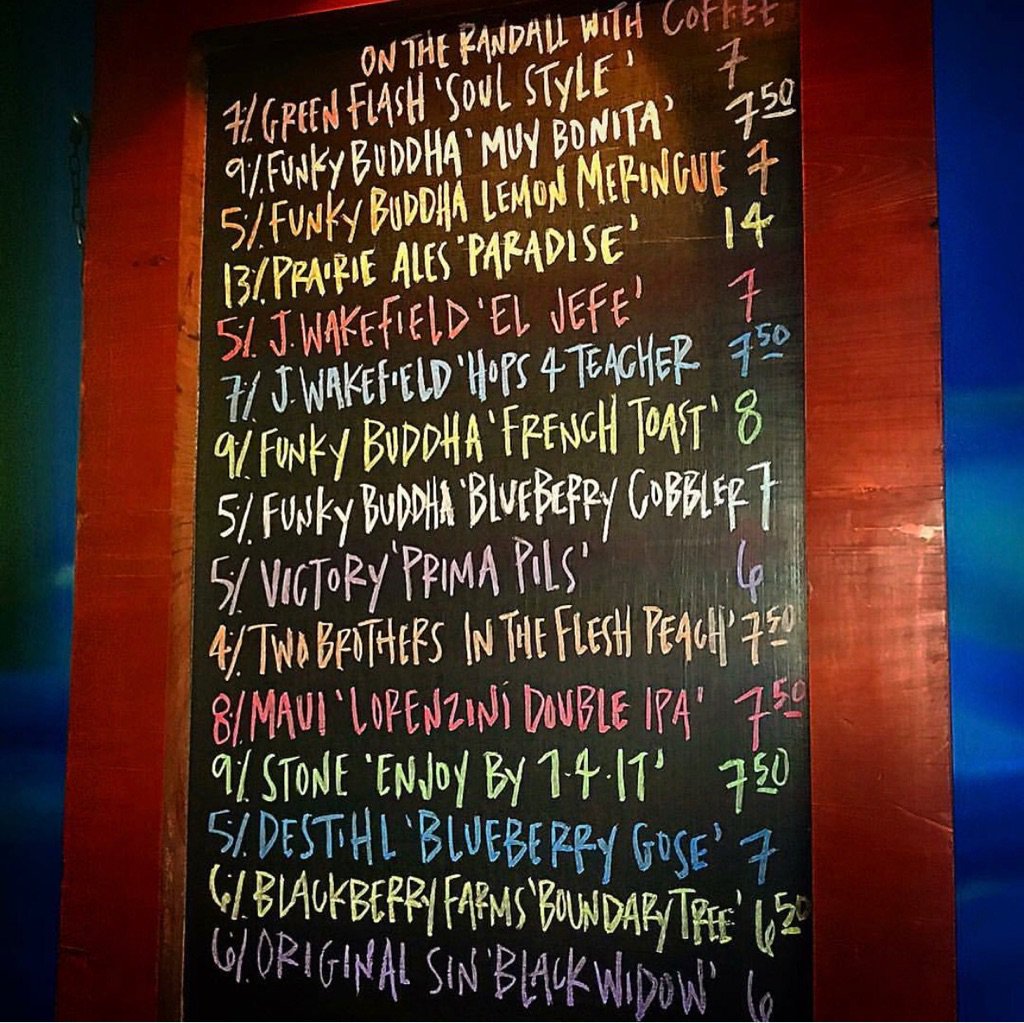 ON THE RANDALL WITH COFFEE
7% GREEN FLASH 'SOUL STYLE' 7
9% FUNKY BUDDHA 'MUY BONITA' 7 50
5% FUNKY BUDDHA LEMON MERINGUE 7
13% PRAIRIE ALES 'PARADISE' 14
5% J. WAKEFIELD 'EL JEFE' 7
7% J. WAKEFIELD 'HOPS 4 TEACHER 7 50
9% FUNKY BUDDHA 'FRENCH TOAST' 8
5% FUNKY BUDDHA 'BLUEBERRY COBBLER 7
5% VICTORY 'PRIMA PILS' 6
4% TWO BROTHERS IN THE FLESH PEACH' 7 50
8% MAUI 'LORENZINI DOUBLE IPA' 7 50
9% STONE 'ENJOY BY 7.4.17' 7 50
5% DESTIHL 'BLUEBERRY GOSE' 7
6% BLACKBERRY FARMS 'BOUNDARY TREE' 6 50
6% ORIGINAL SIN 'BLACK WIDOW' 6